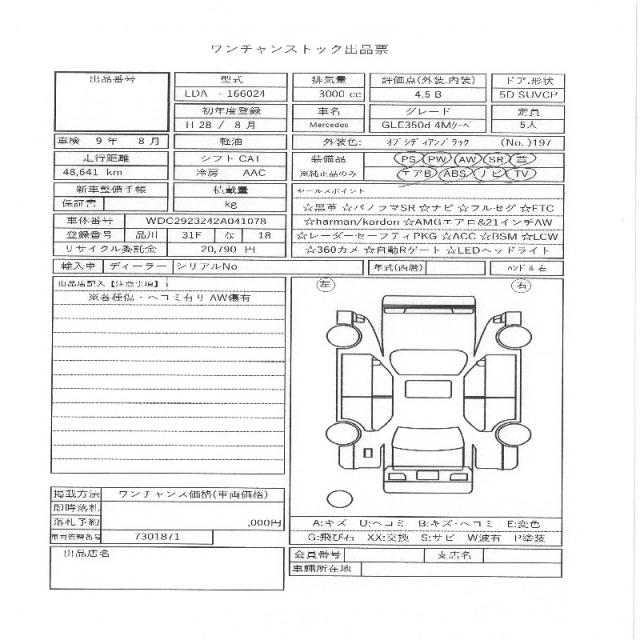 ワンチャンストック出品票
出品番号 型式 排気量 評価点(外装、内装) ドア.形状
LDA -166024 3000 cc 4.5 B 5D SUVCP
初年度登録 車名 グレード 定員
H 28 / 8 月 Mercedes GLE350d 4Mクーペ 5人
車検 9 年 8 月 軽油 外装色: オブシディアンブラック (No.)197
走行距離 シフト CA I 装備品 PS PW AW SR 革
48,641 km 冷房 AAC ※純正品のみ エアB ABS ナビ TV
新車整備手帳 積載量 セールスポイント
保証書 kg ☆黒革 ☆パノラマSR ☆ナビ ☆フルセグ ☆ETC
車体番号 WDC2923242A041078 ☆harman/kardon ☆AMGエアロ&21インチAW
登録番号 品川 31F な 18 ☆レーダーセーフティPKG ☆ACC ☆BSM ☆LCW
リサイクル委託金 20,790 円 ☆360カメ ☆自動Rゲート ☆LEDヘッドライト
輸入車 ディーラー シリアルNo 年式(西暦) ハンドル 右
出品店記入【注意事項】 左 右
※各種傷・ヘコミ有り AW傷有
掲載方法 ワンチャンス価格(車両価格)
即時落札
落札予約 ,000円 A:キズ U:ヘコミ B:キズ・ヘコミ E:変色
車両管理番号 7301871 G:飛び石 XX:交換 S:サビ W波有 P塗装
出品店名 会員番号 支店名
車輌所在地